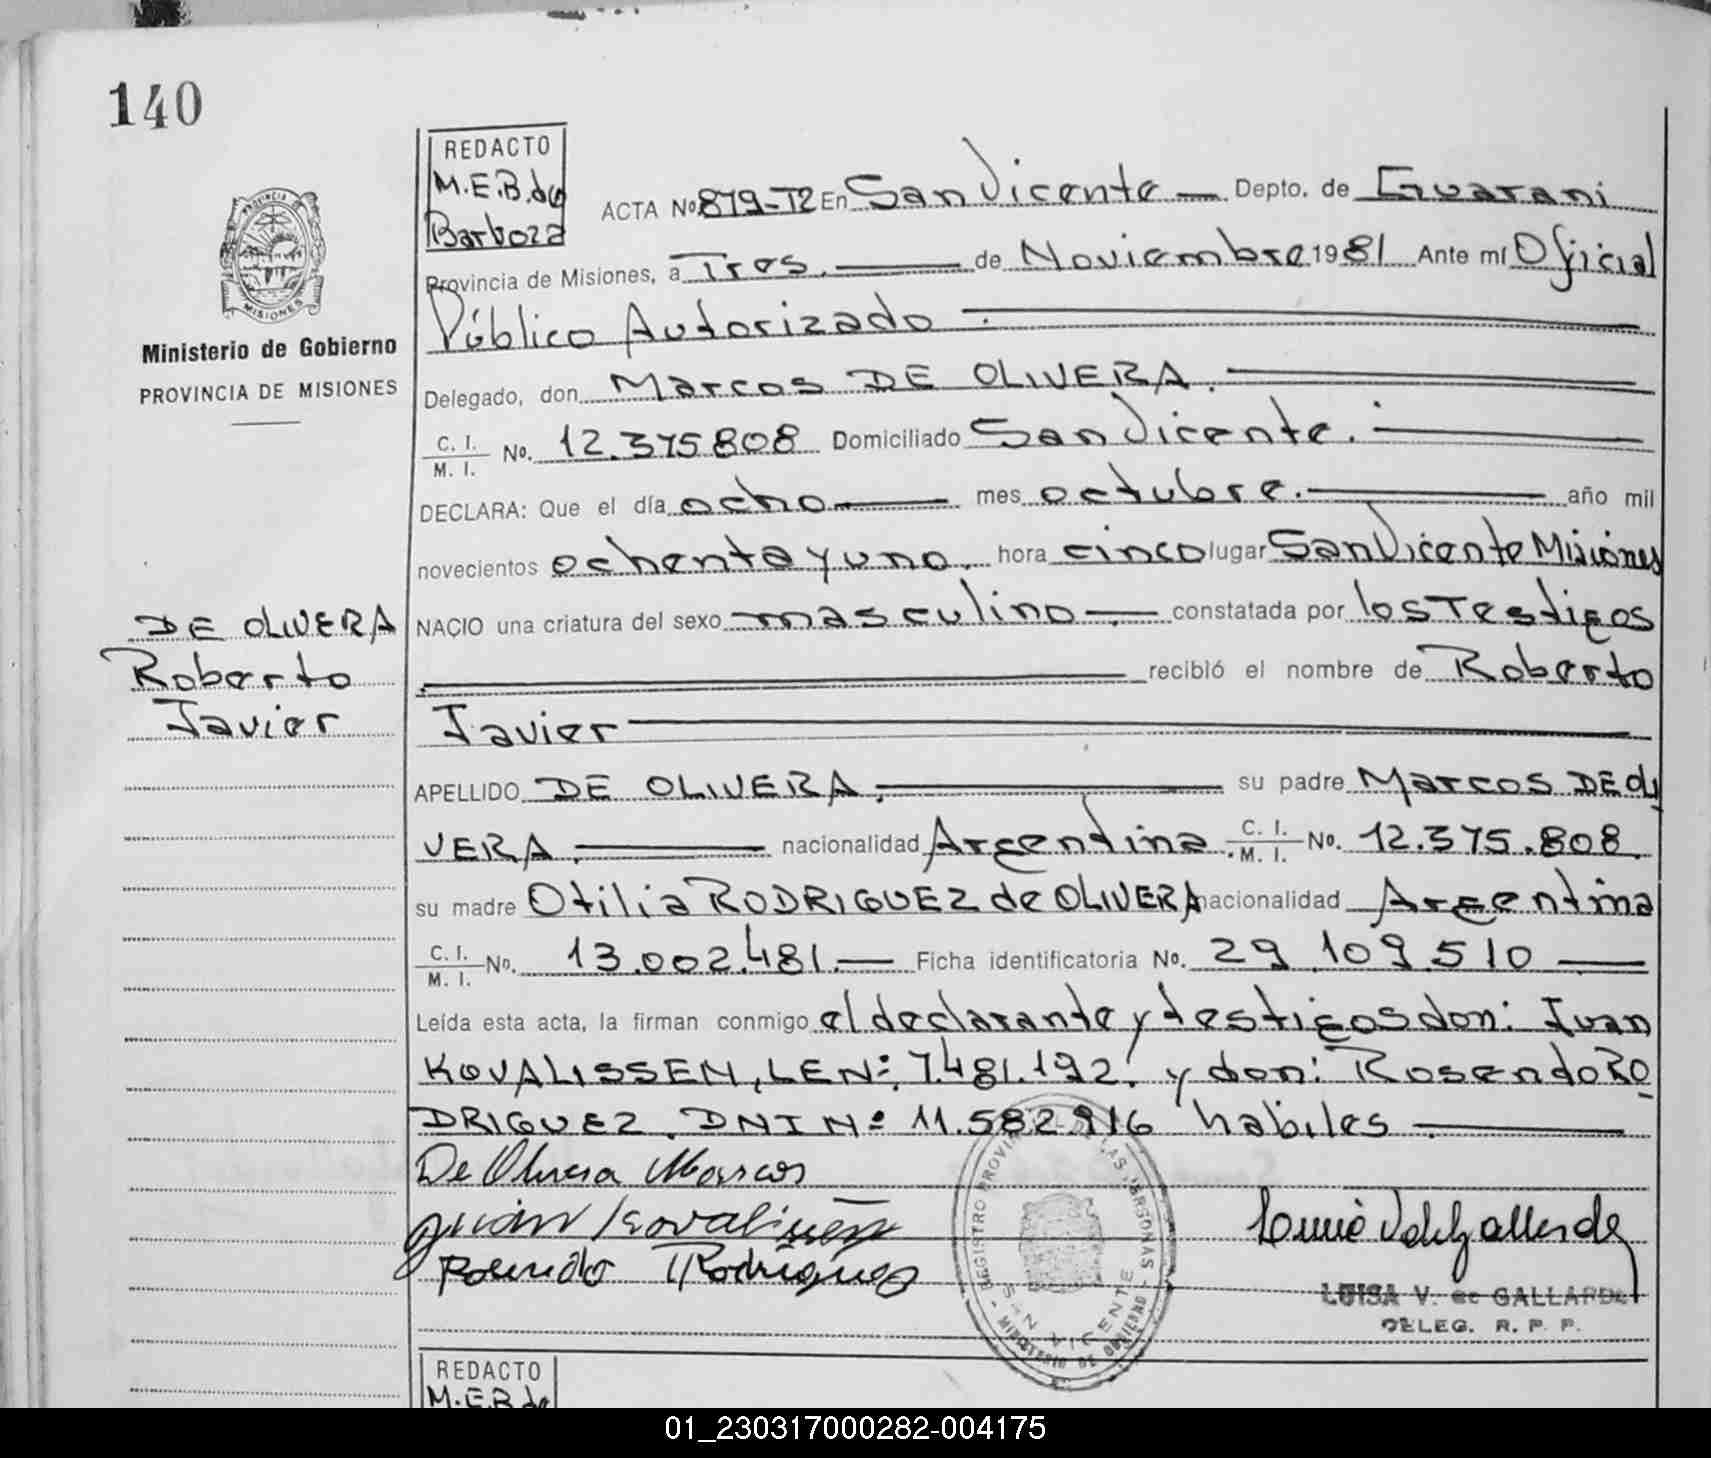 140
REDACTO
M.E.B.de
Barboza
PROVINCIA DE
MISIONES
Ministerio de Gobierno
PROVINCIA DE MISIONES
ACTA No 879-T2 En San Vicente Depto. de Guarani
Provincia de Misiones, a Tres. de Noviembre 1981 Ante mí Oficial
Público Autorizado.
Delegado, don Marcos DE OLIVERA.
C. I. / M. I. No. 12.375808 Domiciliado San Vicente.
DECLARA: Que el día ocho mes octubre. año mil
novecientos ochenta y uno. hora cinco lugar San Vicente Misiones
NACIO una criatura del sexo masculino constatada por los Testigos
recibió el nombre de Roberto
Javier
APELLIDO DE OLIVERA. su padre Marcos DE OLI
VERA. nacionalidad Argentina. C. I. / M. I. No. 12.375.808.
su madre Otilia RODRIGUEZ de OLIVERA nacionalidad Argentina
C. I. / M. I. No. 13.002.481. Ficha identificatoria No. 29.109.510
Leída esta acta, la firman conmigo el declarante y testigos don: Juan
KOVALISSEN, LEN: 7.481.192. y don: Rosendo RO
DRIGUEZ. DNI Nº 11.582.916 habiles
DE OLIVERA
Roberto
Javier
De Olivera Marcos
Juan Kovalissen
Rosendo Rodriguez
REGISTRO PROVINCIAL DE LAS PERSONAS
SAN VICENTE
MINISTERIO DE GOBIERNO
LUISA V. de GALLARDO
DELEG. R. P. P.
REDACTO
M.E.B.de
01_230317000282-004175